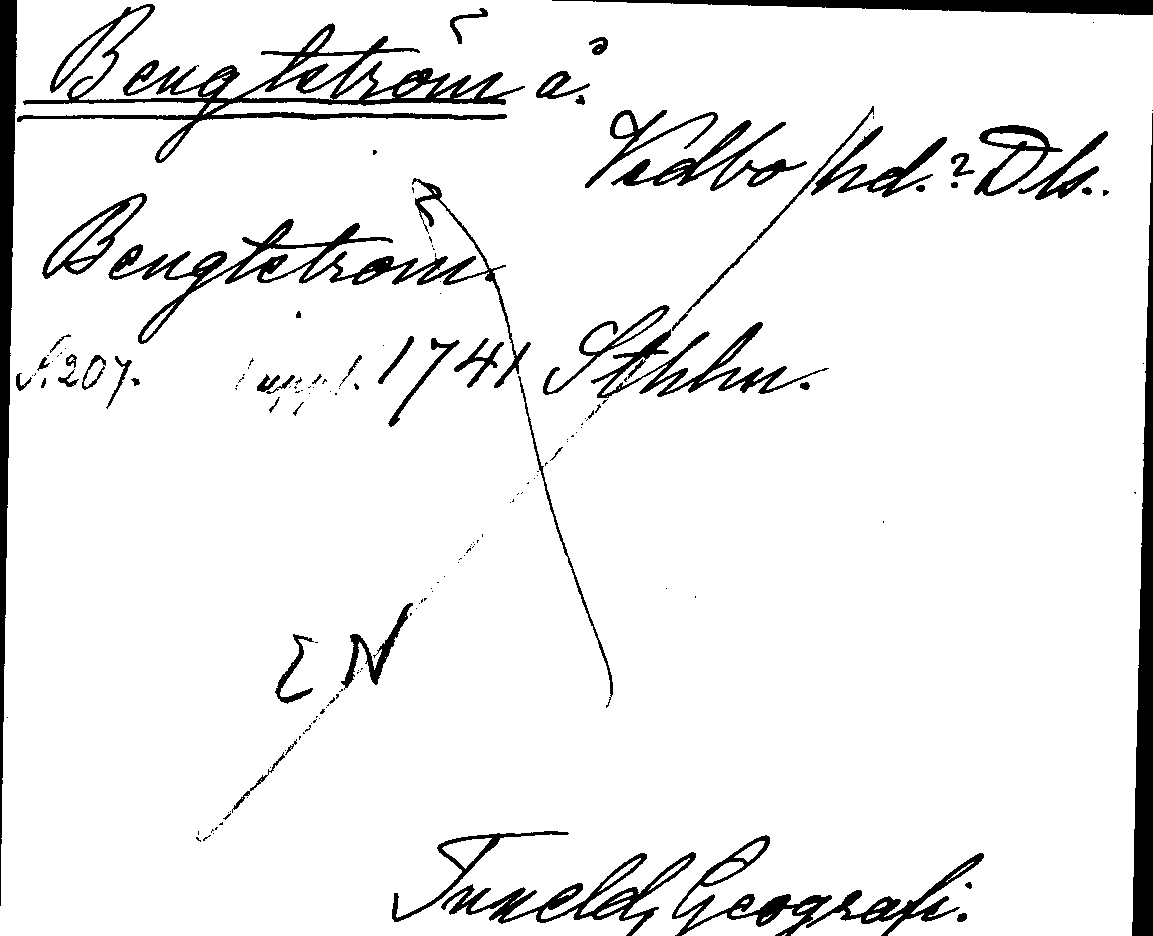 Bengtström å.
Vedbo hd.? Dls.
Bengtström.
S. 207. 1 uppl. 1741 Sthlm.
EN
Tuneld, Geografi.